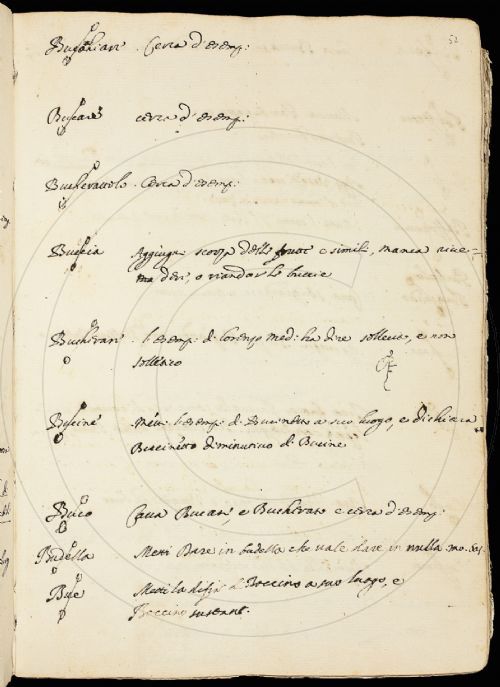 52
Bufonchiare . Cerca d'esemp:
Buscare cerca d'esemp:
Bucherattolo . Cerca d'esemp:
Buccia Aggiugni scorza delle frutte e simili, manca
o riandar le buccie
Bucherare . l'esemp: di Lorenzo Med: ha dire sollecito, e non
sollético
Bucine Metti l'esemp: di Bucinetto a suo luogo, e dichiara
Buccinetto diminutivo di Bucine
Buco Cava Bucato, e Bucherato e cerca d'esemp:
Budella Metti Dare in budella che vale dare in nulla
Bue Metti la difin: di Boccino a suo luogo, e
Boccino sustant: